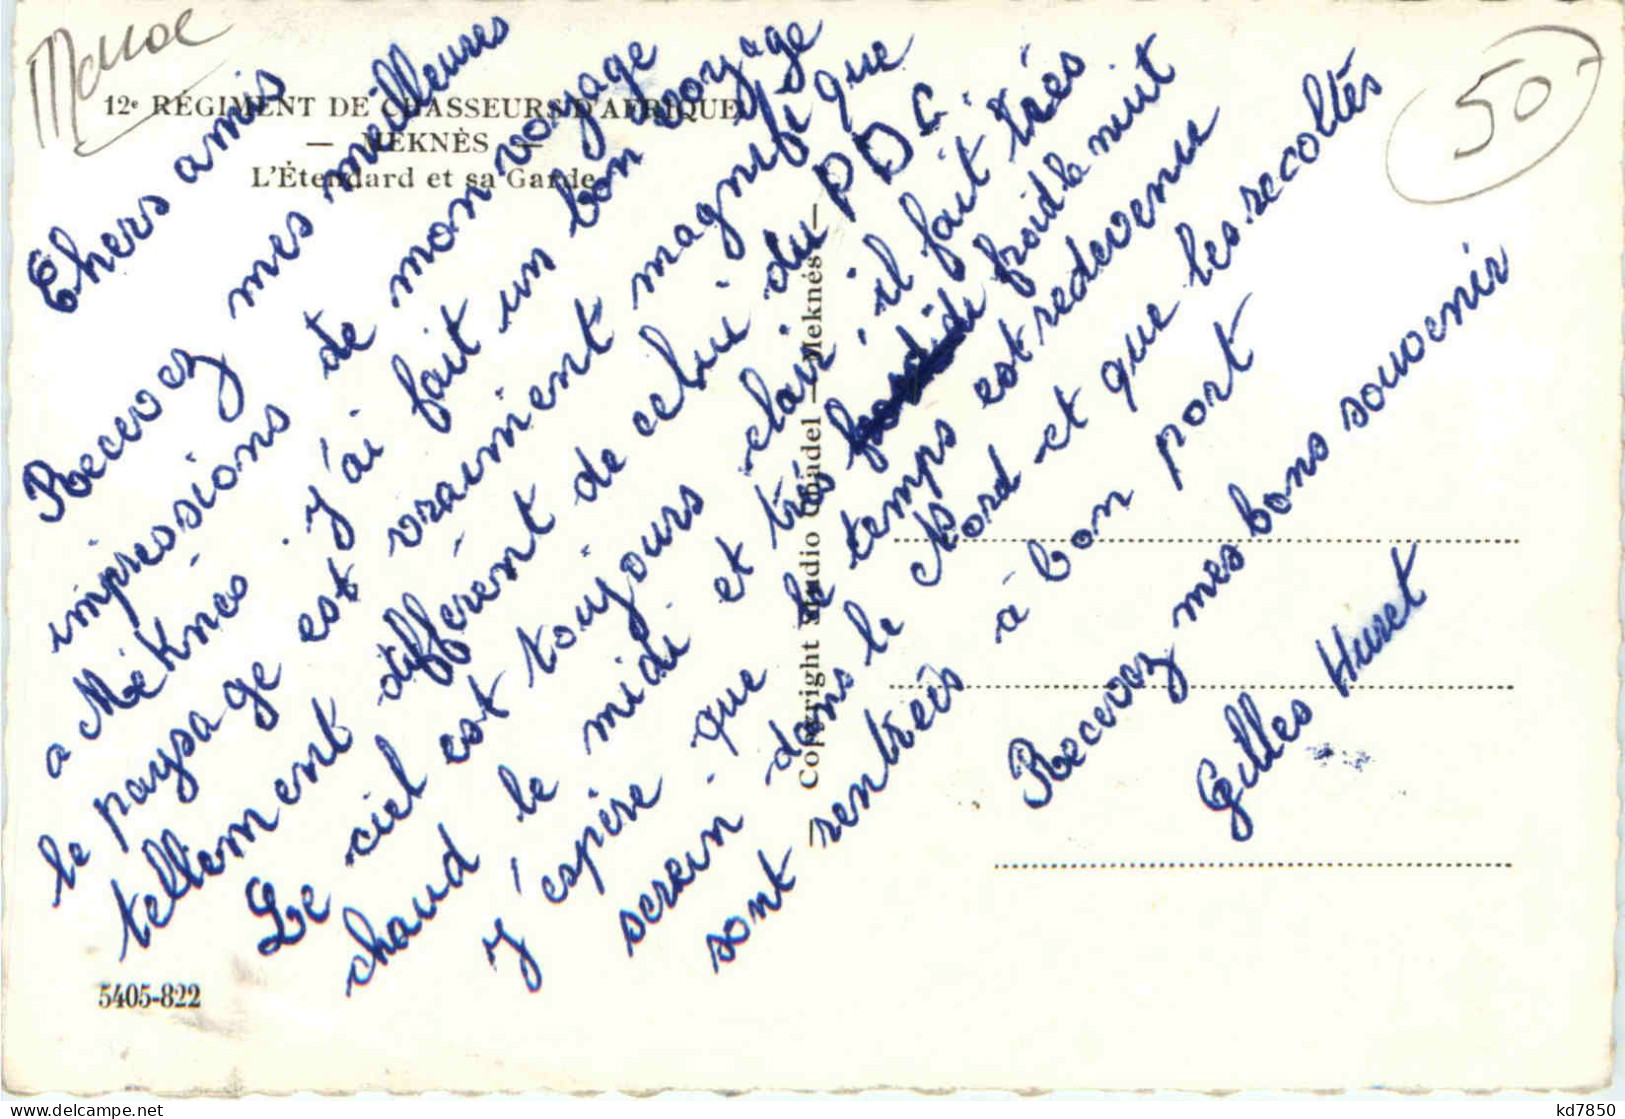 Maroc
50
12e RÉGIMENT DE CHASSEURS D'AFRIQUE
— MEKNÈS —
L'Étendard et sa Garde
Chers amis
Recevez mes meilleures
impressions de mon voyage
a Méknés j'ai fait un bon voyage
le paysage est vraiment magnifique
tellement différent de celui du PDC.
Le ciel est toujours clair, il fait trés
chaud le midi et trés froid la nuit
j'espère que le temps est redevenu
serein dans le Nord et que les recoltés
sont rentreés à bon port
Recevez mes bons souvenir
Gilles Huret
Copyright Studio — Meknès —
5405-822
kd7850